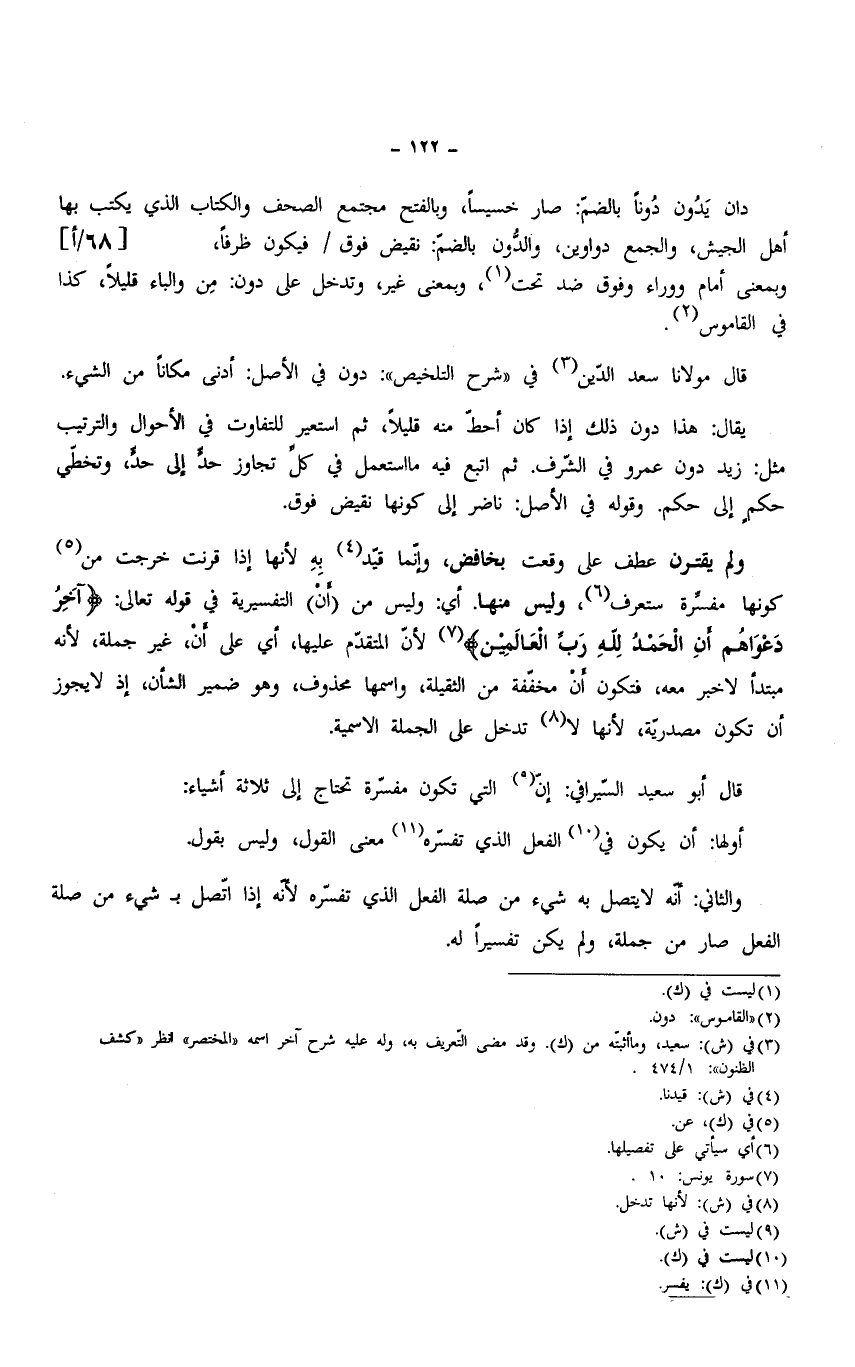 - ١٢٢ -
دان يَدُون دُوناً بالضمّ: صار خسيساً، وبالفتح مجتمع الصحف والكتاب الذي يكتب بها
أهل الجيش، والجمع دواوين، والدُّون بالضمّ: نقيض فوق / فيكون ظرفاً، [٦٨/أ]
وبمعنى أمام ووراء وفوق ضد تحت(١)، وبمعنى غير، وتدخل على دون: مِن والباء قليلاً، كذا
في القاموس(٢).
قال مولانا سعد الدّين(٣) في «شرح التلخيص»: دون في الأصل: أدنى مكاناً من الشيء.
يقال: هذا دون ذلك إذا كان أحطّ منه قليلاً، ثم استعير للتفاوت في الأحوال والترتيب
مثل: زيد دون عمرو في الشّرف. ثم اتبع فيه مااستعمل في كلِّ تجاوز حدٍّ إلى حدٍّ، وتخطّي
حكمٍ إلى حكم. وقوله في الأصل: ناضر إلى كونها نقيض فوق.
ولم يقترن عطف على وقعت بخافض، وإنّما قيّد(٤) بِهِ لأنها إذا قرنت خرجت من(٥)
كونها مفسِّرة ستعرف(٦)، وليس منها. أي: وليس من (أَنْ) التفسيرية في قوله تعالى: ﴿آخِرُ
دَعْوَاهُم أَنِ الْحَمْدُ لِلَّهِ رَبِّ الْعَالَمِيْن﴾(٧) لأنّ المتقدّم عليها، أي على أَنْ، غير جملة، لأنه
مبتدأ لاخبر معه، فتكون أَنْ مخفّفة من الثقيلة، واسمها محذوف، وهو ضمير الشأن، إذ لايجوز
أن تكون مصدريّة، لأنها لا(٨) تدخل على الجملة الاسمية.
قال أبو سعيد السّيرافي: إنّ(٩) التي تكون مفسّرة تحتاج إلى ثلاثة أشياء:
أولها: أن يكون في(١٠) الفعل الذي تفسّره(١١) معنى القول، وليس بقول.
والثاني: أنّه لايتصل به شيء من صلة الفعل الذي تفسّره لأنّه إذا اتّصل بـ شيء من صلة
الفعل صار من جملة، ولم يكن تفسيراً له.
(١)ليست في (ك).
(٢)«القاموس»: دون.
(٣)في (ش): سعيد، وماأثبتّه من (ك). وقد مضى التّعريف به، وله عليه شرح آخر اسمه «المختصر» انظر «كشف
الظنون»: ٤٧٤/١ .
(٤)في (ش): قيدنا.
(٥)في (ك)، عن.
(٦)أي سيأتي على تفصيلها.
(٧)سورة يونس: ١٠ .
(٨)في (ش): لأنها تدخل.
(٩)ليست في (ش).
(١٠)ليست في (ك).
(١١)في (ك): يفسر.